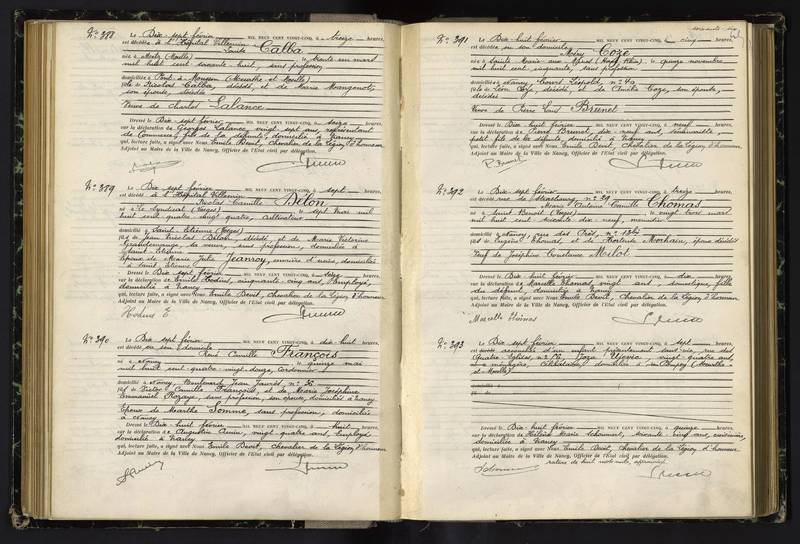 N° 388
Le Dix-sept février MIL NEUF CENT VINGT-CINQ, à treize heures,
est décédée à l'Hôpital Villemin
Calba
née à Metz (Moselle) le trente un mars
mil huit cent soixante huit, sans profession,
domiciliée à Pont à Mousson (Meurthe et Moselle)
fille de Nicolas Calba, décédé, et de Marie Mangenot,
son épouse, décédée
Veuve de Charles Lalance
Dressé le Dix-sept février MIL NEUF CENT VINGT-CINQ, à seize heures,
sur la déclaration de Georges Lalance, vingt sept ans, représentant
de Commerce, fils de la défunte, domicilié à Nancy
qui, lecture faite, a signé avec Nous Emile Bevit, Chevalier de la Légion d'honneur
Adjoint au Maire de la Ville de Nancy, Officier de l'Etat civil par délégation.
N° 389
Le Dix-sept février MIL NEUF CENT VINGT-CINQ, à sept heures,
est décédé à l'Hôpital Villemin
Nicolas Camille Bélon
né à Le Syndicat (Vosges) le sept Mai mil
huit cent quatre vingt quatre, cultivateur
domicilié à Saint-Etienne (Vosges)
fils de Jean Nicolas Bélon, décédé, et de Marie Victorine
Grandemange, sa veuve, sans profession, domiciliée à
Saint-Etienne
Epoux de Marie Julie Jeanroy, ouvrière d'usine, domiciliée
à Saint Etienne
Dressé le Dix sept février MIL NEUF CENT VINGT-CINQ, à seize heures,
sur la déclaration de Emile Hodins, cinquante-cinq ans, Employé,
domicilié à Nancy
qui, lecture faite, a signé avec Nous Emile Bevit, Chevalier de la Légion d'honneur
Adjoint au Maire de la Ville de Nancy, Officier de l'Etat civil par délégation.
Hodins E
N° 390
Le Dix sept février MIL NEUF CENT VINGT-CINQ, à dix-huit heures,
est décédé en son domicile
René Camille François
né à Nancy le quinze mai
mil huit cent quatre-vingt-douze, Cordonnier
domicilié à Nancy, Boulevard Jean Jaurès, n° 36
fils de Victor Camille François, et de Marie Joséphine
Emmanuel Rozaye, sans profession, son épouse, domiciliés à Nancy
Epoux de Marthe Somme, sans profession, domiciliée
à Nancy
Dressé le Dix-huit février MIL NEUF CENT VINGT-CINQ, à huit heures,
sur la déclaration de Augustin Amin, vingt-quatre ans, Employé
domicilié à Nancy
qui, lecture faite, a signé avec Nous Emile Bevit, Chevalier de la Légion d'honneur
Adjoint au Maire de la Ville de Nancy, Officier de l'Etat civil par délégation.
N° 391
Le Dix-huit février MIL NEUF CENT VINGT-CINQ, à cinq heures,
est décédée en son domicile
Méry Coze
née à Sainte-Marie-aux-Mines (Haut Rhin) le quinze novembre
mil huit cent cinquante, sans profession
domiciliée à Nancy, Cours Léopold, n° 40
fille de Léon Coze, décédé, et de Amélie Coze, son épouse,
décédée
Veuve de Pierre Louis Brunet
Dressé le Dix huit février MIL NEUF CENT VINGT-CINQ, à neuf heures,
sur la déclaration de Pierre Brunet, dix-neuf ans, séminariste,
petit fils de la défunte, domicilié à Nancy
qui, lecture faite, a signé avec Nous Emile Bevit, Chevalier de la Légion d'honneur
Adjoint au Maire de la Ville de Nancy, Officier de l'Etat civil par délégation.
P. Brunet
N° 392
Le Dix-sept février MIL NEUF CENT VINGT-CINQ, à treize heures,
est décédé rue de Strasbourg, n° 29
Marie Antoine Camille Thomas
né à Saint Benoit (Vosges) le vingt trois mars
mil huit cent soixante dix-neuf, menuisier
domicilié à Nancy, rue des Prés, n° 13bis
fils de Eugène Thomas, et de Hortense Morhain, époux décédés
Veuf de Joséphine Constance Milot
Dressé le Dix-huit février MIL NEUF CENT VINGT-CINQ, à dix heures,
sur la déclaration de Marcelle Thomas, vingt ans, domestique, fille
du défunt, domiciliée à Nancy
qui, lecture faite, a signé avec Nous Emile Bevit, Chevalier de la Légion d'honneur
Adjoint au Maire de la Ville de Nancy, Officier de l'Etat civil par délégation.
Marcelle Thomas
N° 393
Le Dix-sept février MIL NEUF CENT VINGT-CINQ, à sept heures,
est accouchée d'un enfant présentement sans vie, rue des
Quatre Eglises, vingt quatre ans,
ménagère, Célibataire, domiciliée à Pompey (Meurthe-
et-Moselle)
domicilié à
fil de
Dressé le Dix-huit février MIL NEUF CENT VINGT-CINQ, à quinze heures,
sur la déclaration de Hélène Marie Schoumert, soixante cinq ans,
domiciliée à Nancy
qui, lecture faite, a signé avec Nous Emile Bevit, Chevalier de la Légion d'honneur
Adjoint au Maire de la Ville de Nancy, Officier de l'Etat civil par délégation.